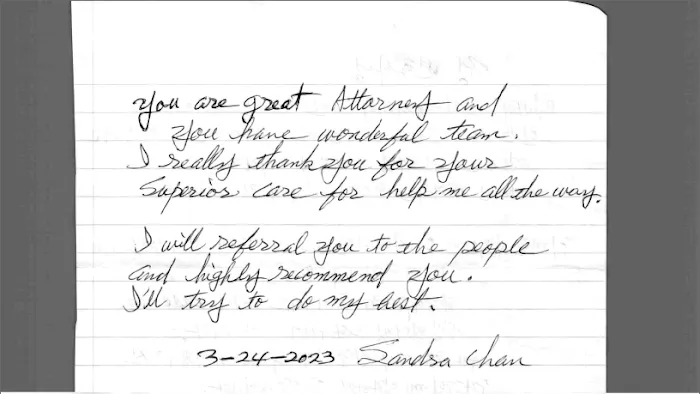 you are great Attorney and
you have wonderful team.
I really thank you for your
Superior care for help me all the way.
I will referral you to the people
and highly recommend you.
I'll try to do my best.
3-24-2023 Sandra Chan